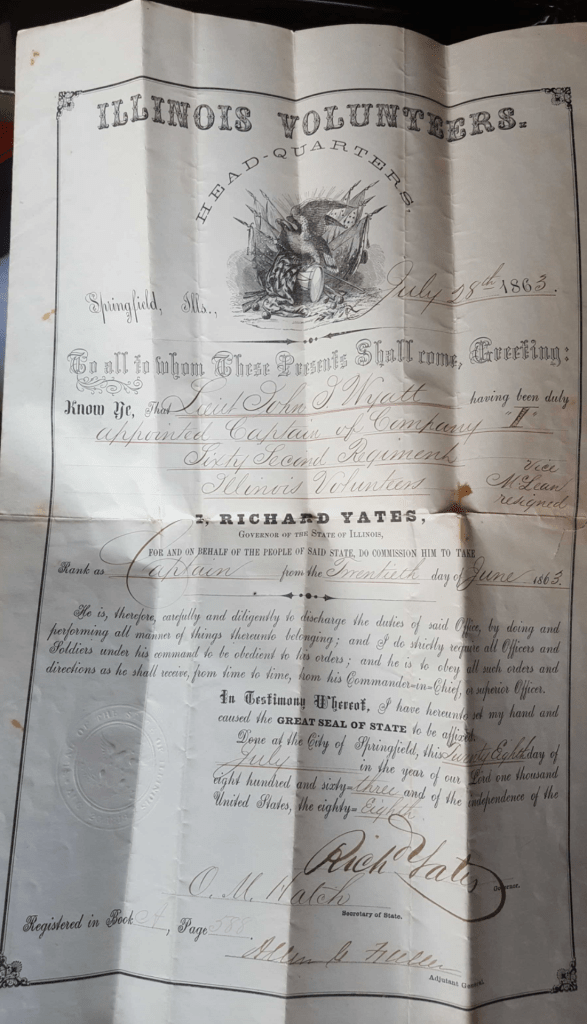 ILLINOIS VOLUNTEERS.
HEAD-QUARTERS,
Springfield, Ills., July 28th 1863.
To all to whom These Presents Shall come, Greeting:
Know Ye, That Lieut John J Wyatt having been duly
appointed Captain of Company
Sixty Second Regiment Vice
Illinois Volunteers McLean
resigned
I, RICHARD YATES,
GOVERNOR OF THE STATE OF ILLINOIS,
FOR AND ON BEHALF OF THE PEOPLE OF SAID STATE, DO COMMISSION HIM TO TAKE
Rank as Captain from the Twentieth day of June 1863.
He is, therefore, carefully and diligently to discharge the duties of said Office, by doing and
performing all manner of things thereunto belonging; and I do strictly require all Officers and
Soldiers under his command to be obedient to his orders; and he is to obey all such orders and
directions as he shall receive, from time to time, from his Commander-in-Chief, or superior Officer.
In Testimony Whereof, I have hereunto set my hand and
caused the GREAT SEAL OF STATE to be affixed.
Done at the City of Springfield, this Twenty Eighth day of
July in the year of our Lord one thousand
eight hundred and sixty-three and of the independence of the
United States, the eighty-Eighth
Richd Yates
Governor.
O. M. Hatch
Secretary of State.
Registered in Book A, Page 588
Allen C Fuller
Adjutant General.